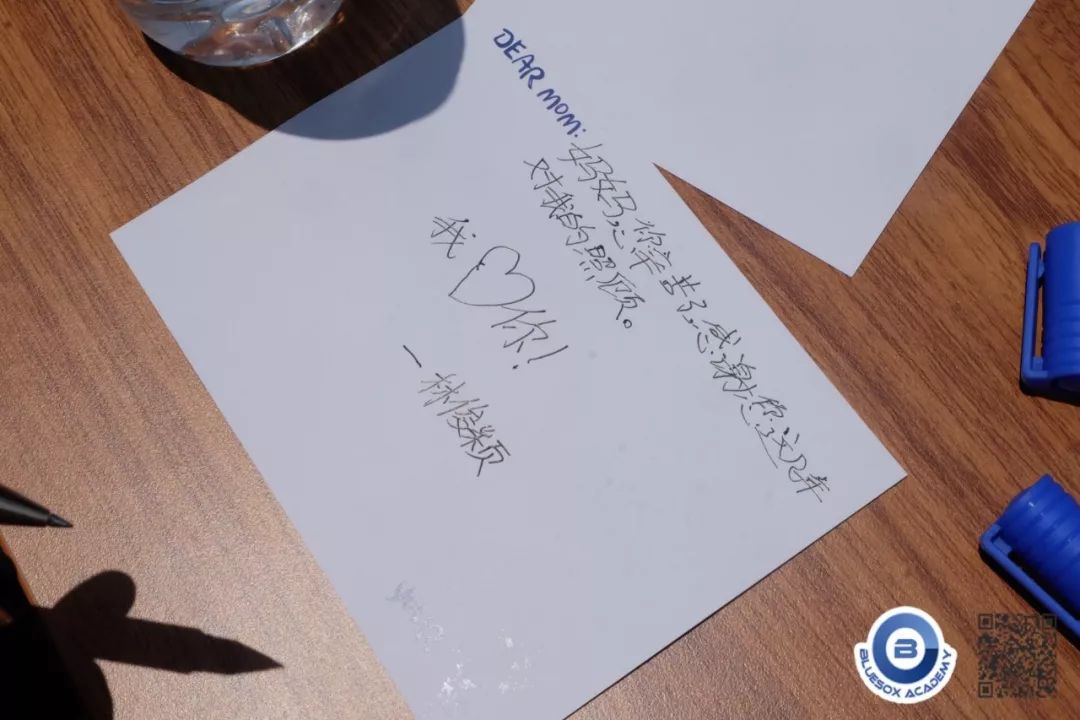 DEAR MOM:
妈妈,您辛苦了,感谢您这几年
对我的照顾。
我♡你!
—林俊
B
BLUESOX ACADEMY